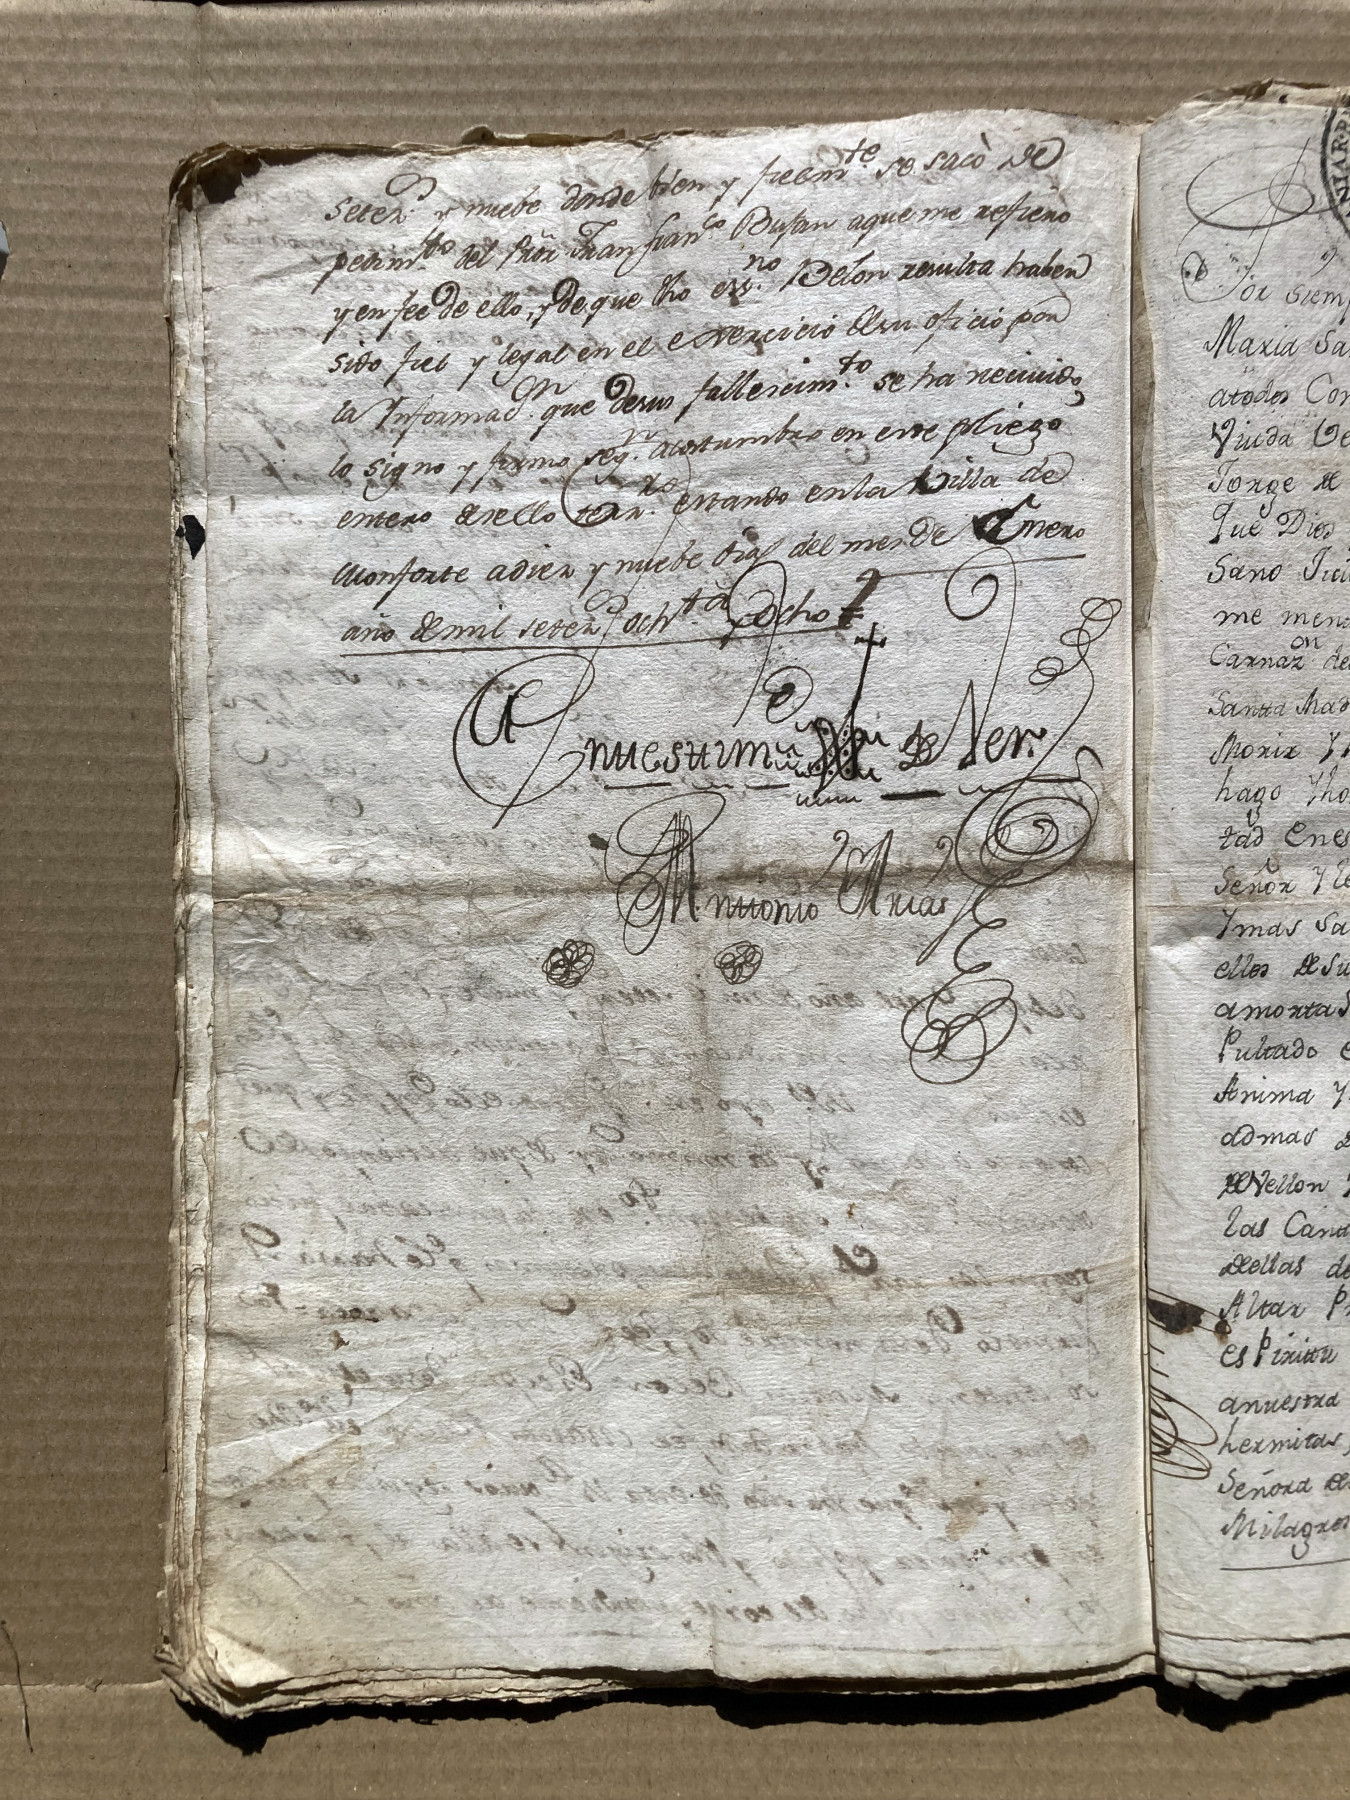 seten.s y nuebe donde bien y fielm.te se sacò de
pedim.to del Señor Juan fran.co Busan aque me refiero
y en fee de ello, y de que dho ess.no Belon resulta haber
sido fiel y legal en el exercicio de su oficio por
la Informac.on que de su fallecim.to se ha recivido,
lo signo y firmo seg.n acostumbro en este pliego
entero de sello terz.ro estando en la Villa de
Monforte a diez y nuebe dias del mes de Enero
año de mil seten.s och.ta y ocho =
En testim.o de Ver.d
Antonio Arias
Por siem
Maria Sa
atodos Con
Viuda Ve
Jorge de
que Dios
Sano Juic
me men
Carnaz.on de
Santta Mad
Morir Y
hago Yho
tad enes
Señor Y
Ymas Sa
ellos de su
amortas
Pultado
Anima Y
admas
de Vellon
las Can
de ellas de
Altar Pr
espiritu
anuestra
hermitas
Señora de
Milagros